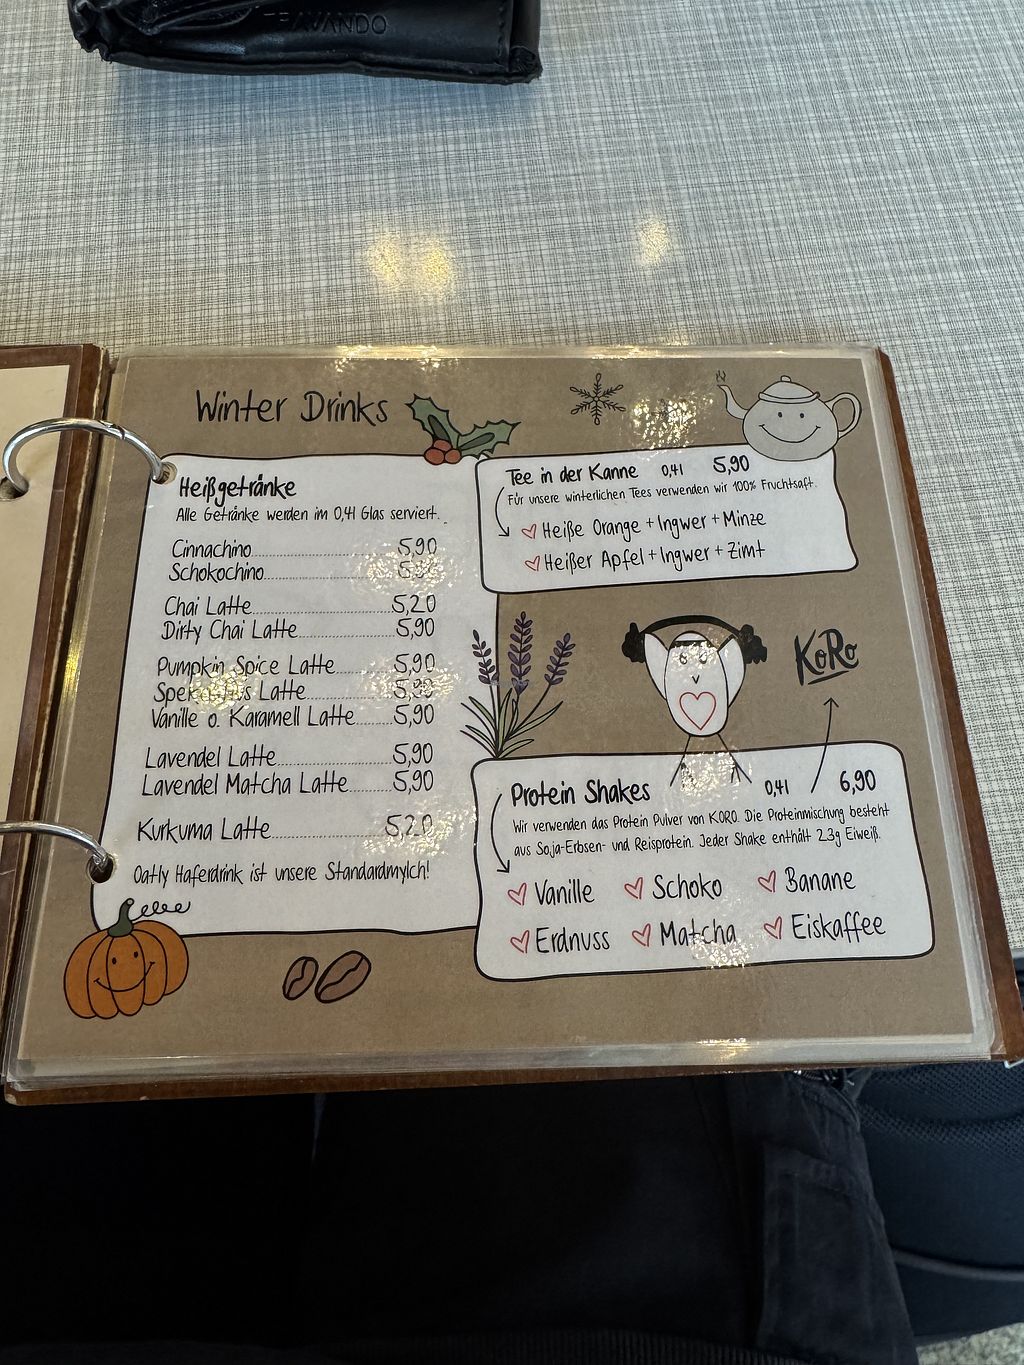 Winter Drinks
Heißgetränke
Alle Getränke werden im 0,4l Glas serviert.
Cinnachino 5,90
Schokochino
Chai Latte 5,20
Dirty Chai Latte 5,90
Pumpkin Spice Latte 5,90
Latte
Vanille o. Karamell Latte 5,90
Lavendel Latte 5,90
Lavendel Matcha Latte 5,90
Kurkuma Latte 5,20
Oatly Haferdrink ist unsere Standardmylch!
Tee in der Kanne 0,4l 5,90
Für unsere winterlichen Tees verwenden wir 100% Fruchtsaft.
Heiße Orange + Ingwer + Minze
Heißer Apfel + Ingwer + Zimt
KoRo
Protein Shakes 0,4l 6,90
Wir verwenden das Protein Pulver von KORO. Die Proteinmischung besteht
aus Soja-Erbsen- und Reisprotein. Jeder Shake enthält 23g Eiweiß.
Vanille Schoko Banane
Erdnuss Matcha Eiskaffee